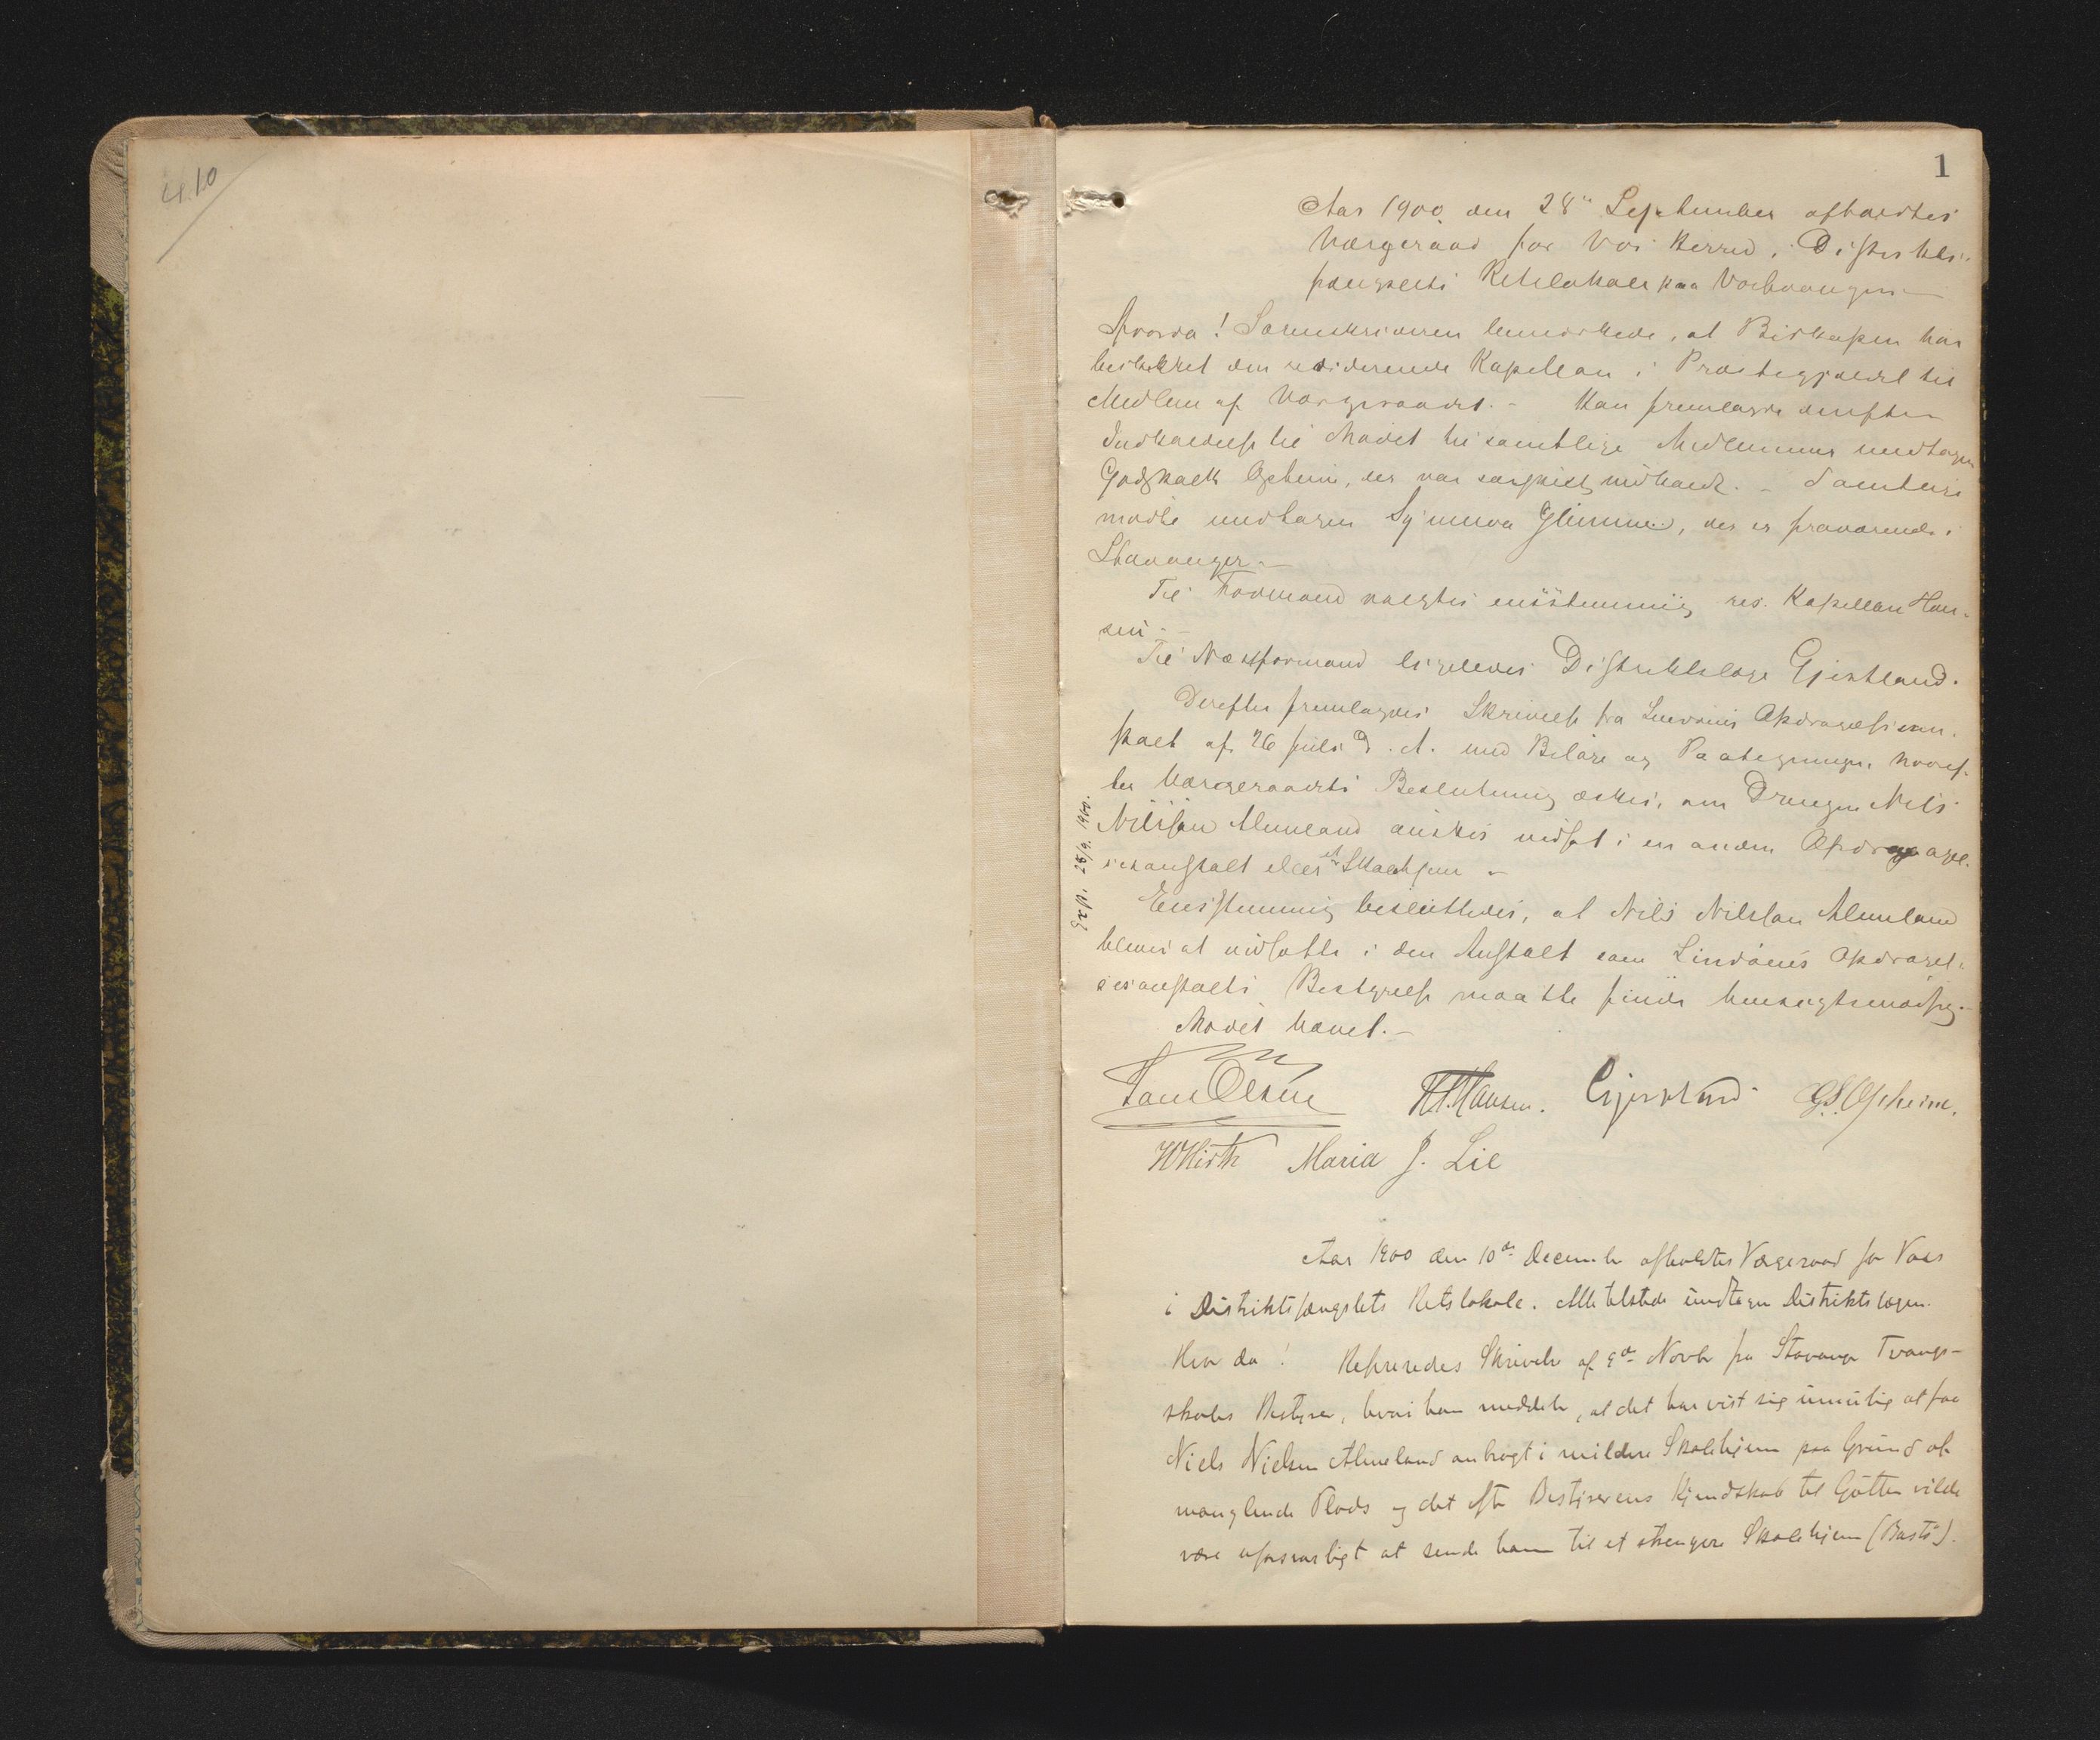 4.10
1
Aar 1900 den 28de September afholdtes
Værgeraad for Vos Herred i Distrikts-
fængslets Retslokale paa Vossevangen
Hvorda! Sorenskriveren bemærkede, at Biskopen har
beskikket den residerende Kapellan i Præstegjældet til
Medlem af Værgeraadet. - Han fremlagde derefter
Indkaldelse til Mødet til samtlige Medlemmer undtagen
Opheim, der var særskilt indkaldt. - Samtlige
mødte undtagen Synneva Glimme, der er fraværende i
Stavanger. -
Til Formand valgtes enstemmig res. Kapellan Han-
sen. -
Til Næstformand ligeledes Distriktslæge Gjerstland.
Derefter fremlagdes Skrivelse fra Lindøens Opdragelsesan-
stalt af 26 Juli d. A. med Bilage og Paategninger, hvoref-
ter Værgeraadets Beslutning æskes, om Drengen Nils
Nilssen Almeland ønskes indsat i en anden Opdragel-
sesanstalt eller et Skolehjem -
Expd. 28/9. 1900.
Enstemmig besluttedes, at Nils Nilssen Almeland
bliver at indsætte i den Anstalt som Lindøens Opdragel-
sesanstalts Bestyrelse maatte finde hensigtsmæssig.
Mødet hævet. -
Olsen H. Hansen. Gjerstland G. S. Opheim.
Maria J. Lie
Aar 1900 den 10de December afholdtes Værgeraad for Voss
i Distriktsfængslets Retslokale. Alle tilstede undtagen Distriktslægen.
Hvor da! Refereredes Skrivelse af 9de Novbr fra Stavanger Tvangs-
skoles Bestyrer, hvori han meddeler, at det har vist sig umulig at faa
Niels Nielsen Almeland anbragt i mildere Skolehjem paa Grund af
manglende Plads og det efter Bestyrerens Kjendskab til Gutten vilde
være uforsvarligt at sende ham til et strengere Skolehjem (Bastø).